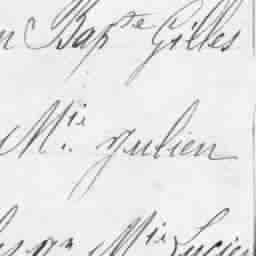 n Bapte Gilles
Mie Julien
Mie Lucien